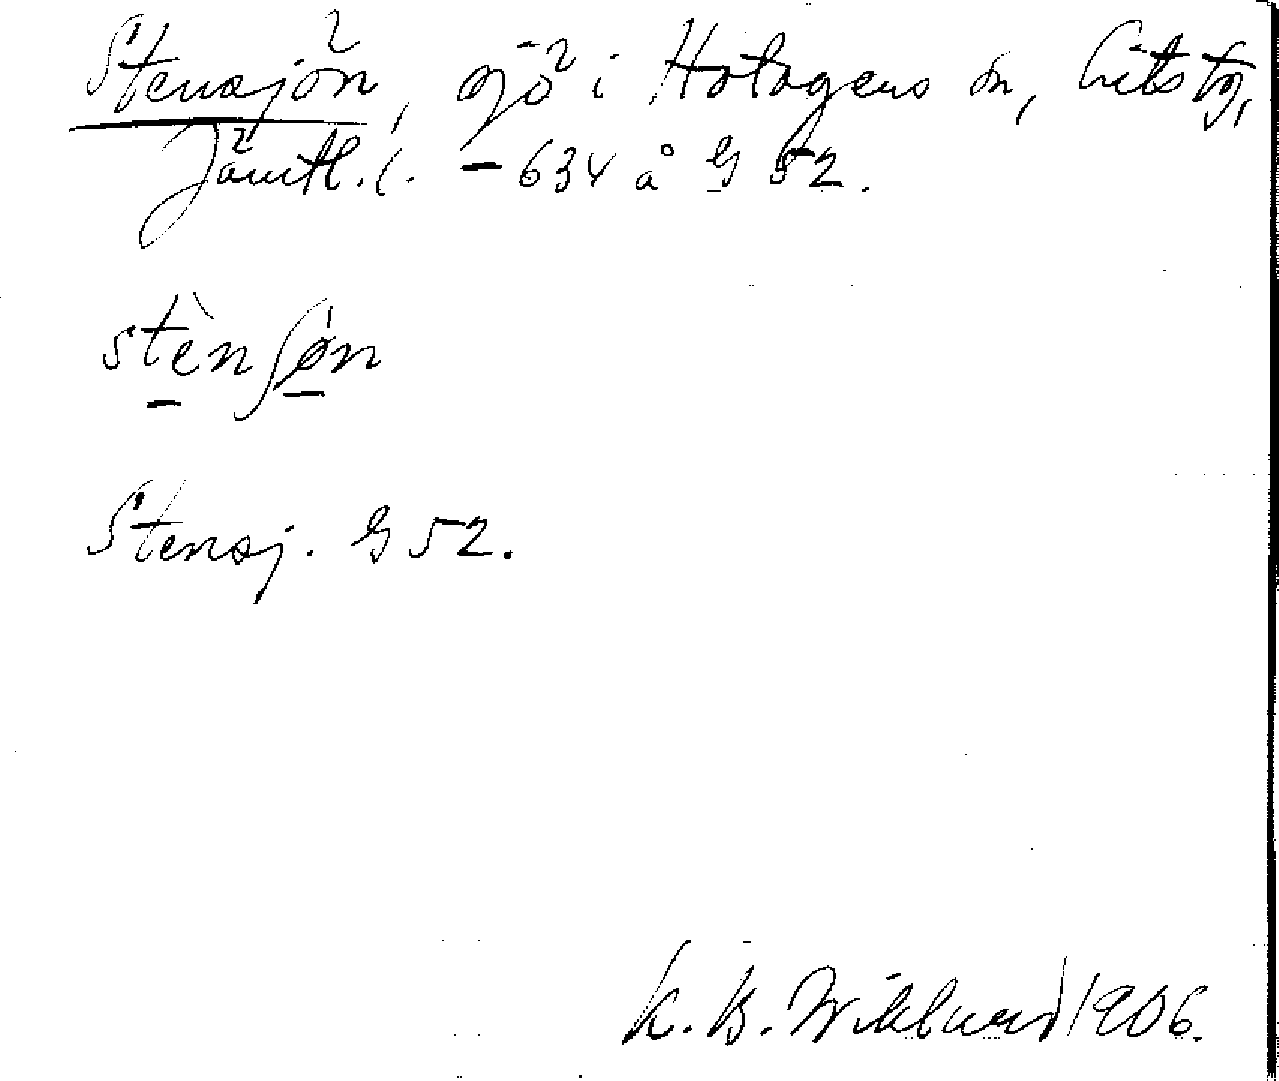 Stensjön, sjö i Hotagens sn, Lits tg,
Jämtl. l. – 634 å G 52.
stènʃøn
Stensj. G 52.
K. B. Wiklund 1906.